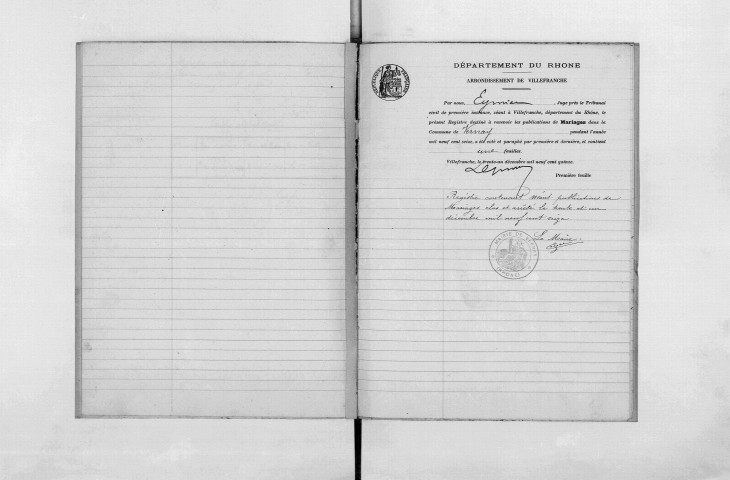 DÉPARTEMENT DU RHONE
ARRONDISSEMENT DE VILLEFRANCHE
Par nous, Juge près le Tribunal
civil de première instance, séant à Villefranche, département du Rhône, le
présent Registre destiné à recevoir les publications de Mariages dans la
Commune de Vernay pendant l'année
mil neuf cent seize, a été coté et paraphé par première et dernière, et contient
une feuilles.
Villefranche, le trente-un décembre mil neuf cent quinze.
Première feuille
Registre contenant néant publications de
Mariages clos et arrêté le trente et un
décembre mil neuf cent seize
Le Maire